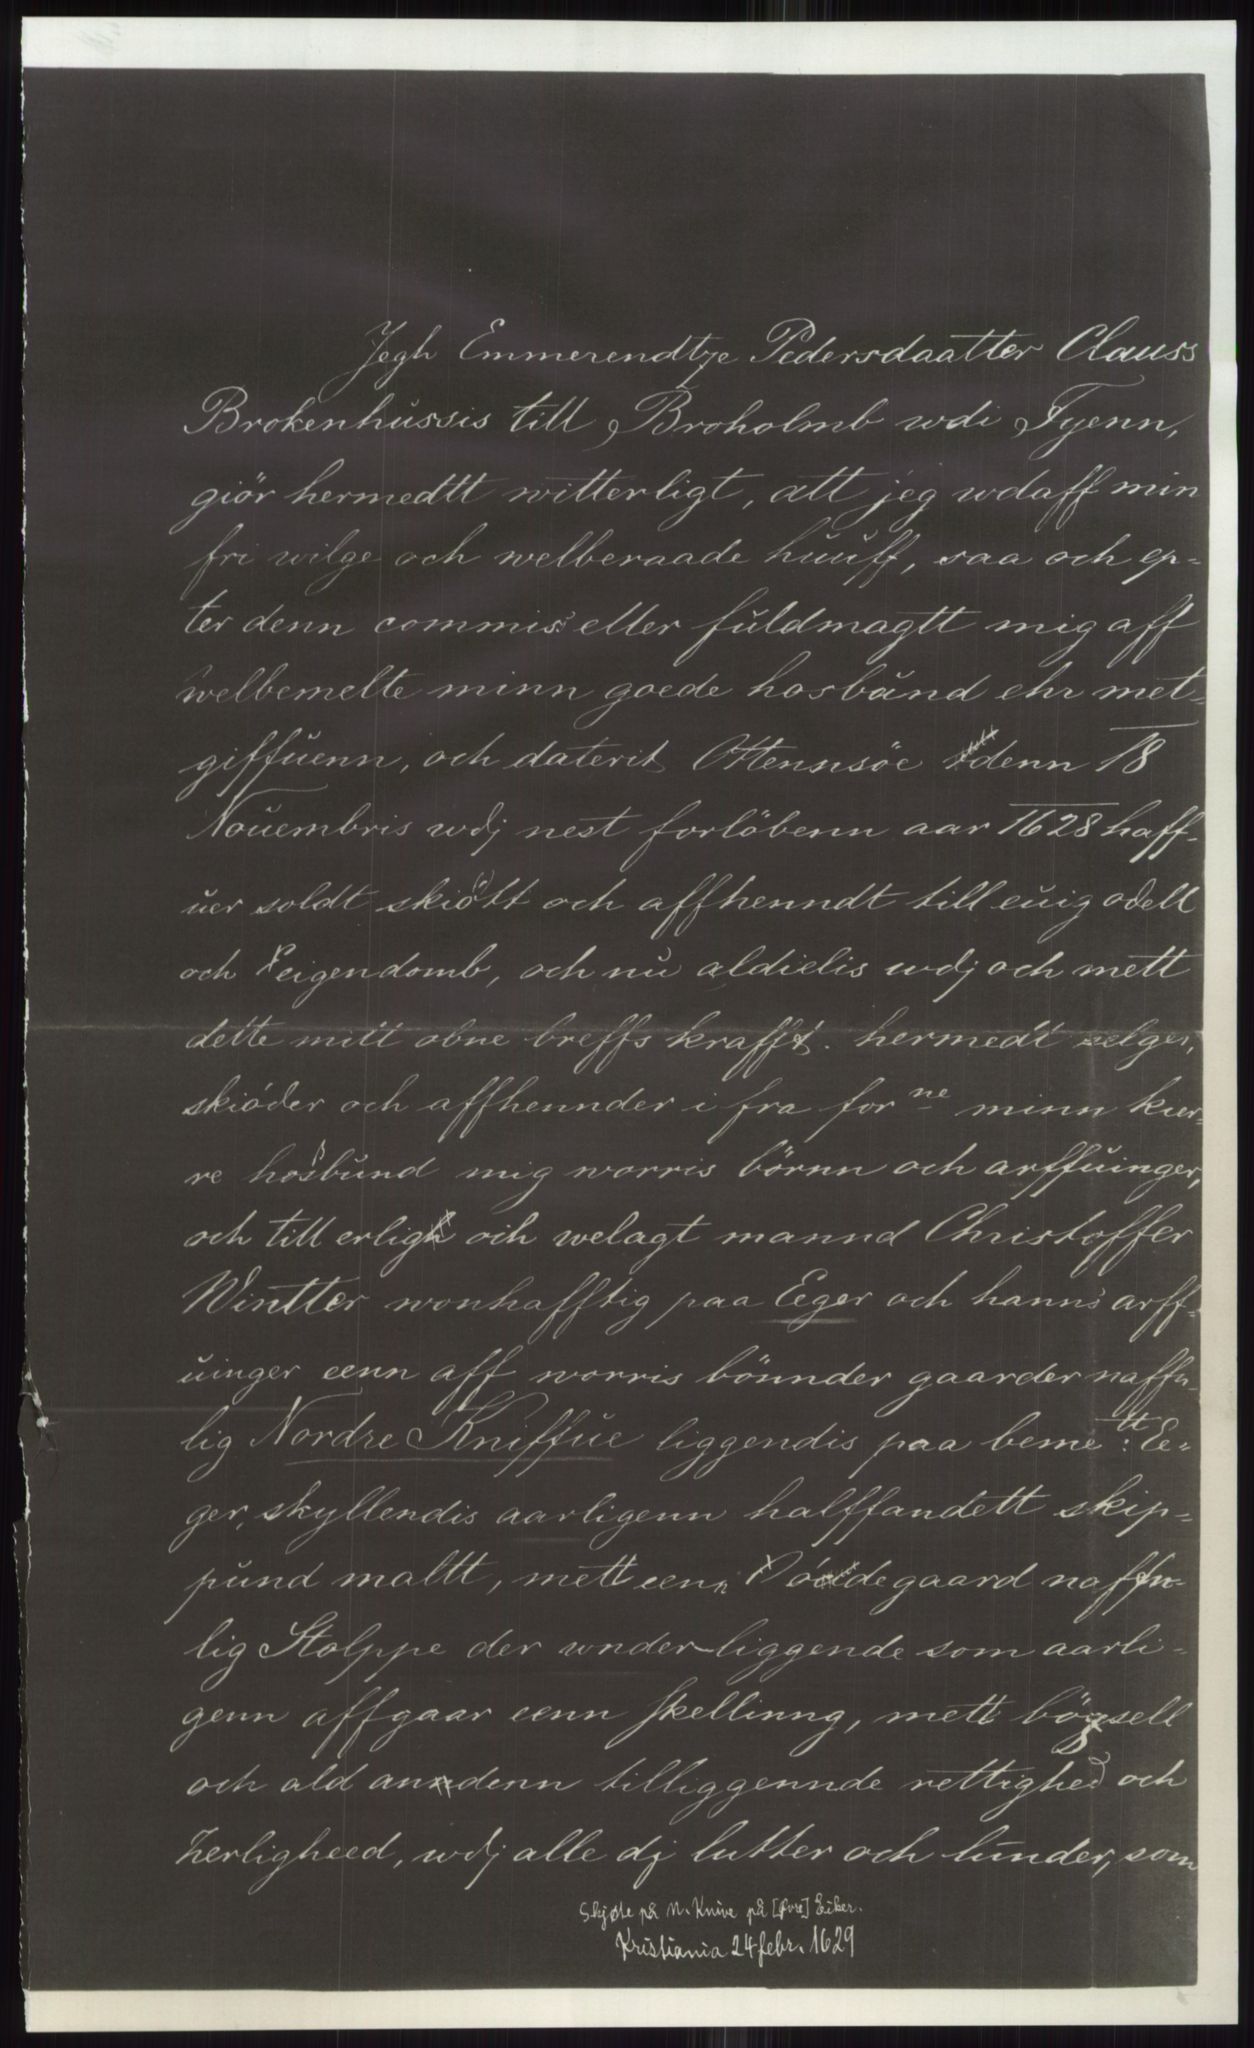 Jegh Emmerendtze Pedersdaatter Clauss
Brokenhussis till Broholmb wdi Fyenn,
giör hermedtt witterligt, att jeg wdaff min
fri wilge och welberaade huuff, saa och ep-
ter denn commis: eller fuldmagtt mig aff
welbemelte minn goede hosbånd ehr met-
giffuenn, och daterit Ottennsöe denn 18
Nouembris wdj nest forlöbenn aar 1628 haff-
uer soldt skiött och affhenndt till euig odell
och eigendomb, och nu aldielis wdj och mett
dette mitt obne breffs krafft hermedt selger,
skiöder och affhennder i fra for ne minn kier-
re hosbund mig worris börnn och arffuinger,
och till erlig och welagt mannd Christoffer
Wintter wonhafftig paa Eger och hanns arff-
uinger eenn aff worris bönnder gaarder naffn-
lig Nordre Kniffue liggendis paa beme:tt Ee-
ger, skyllendis aarligenn halffandett skip-
pund maltt, mett eenn ödegaard naffn-
lig Stolppe der wnder liggende som aarli-
genn affgaar eenn skellinng, mett böxsell
och ald anndenn tilliggennde rettighed och
herligheed, wdj alle dj lutter och lunder, som
Skjøte på N. Knive på [Øvre] Eiker.
Kristiania 24 febr. 1629